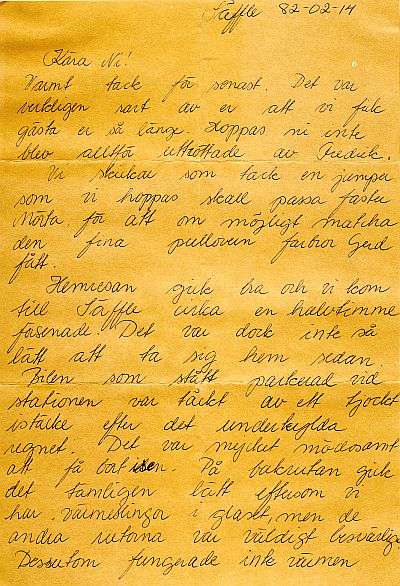 Säffle 82-02-14
Kära Ni!
Varmt tack för senast. Det var
verkligen rart av er att vi fick
gästa er så länge. Hoppas ni inte
blev alltför uttröttade av Fredrik.
Vi skickar som tack en jumper
som vi hoppas skall passa faster
Märta, för att om möjligt matcha
den fina pullovern farbror Gerd
fått.
Hemresan gick bra och vi kom
till Säffle cirka en halvtimme
försenade. Det var dock inte så
lätt att ta sig hem sedan
Bilen som stått parkerad vid
stationen var täckt av ett tjockt
istäcke efter det underkylda
regnet. Det var mycket mödosamt
att få bort isen. På bakrutan gick
det tämligen lätt eftersom vi
har värmeslingor i glaset, men de
andra rutorna var väldigt besvärliga.
Dessutom fungerade inte värmen